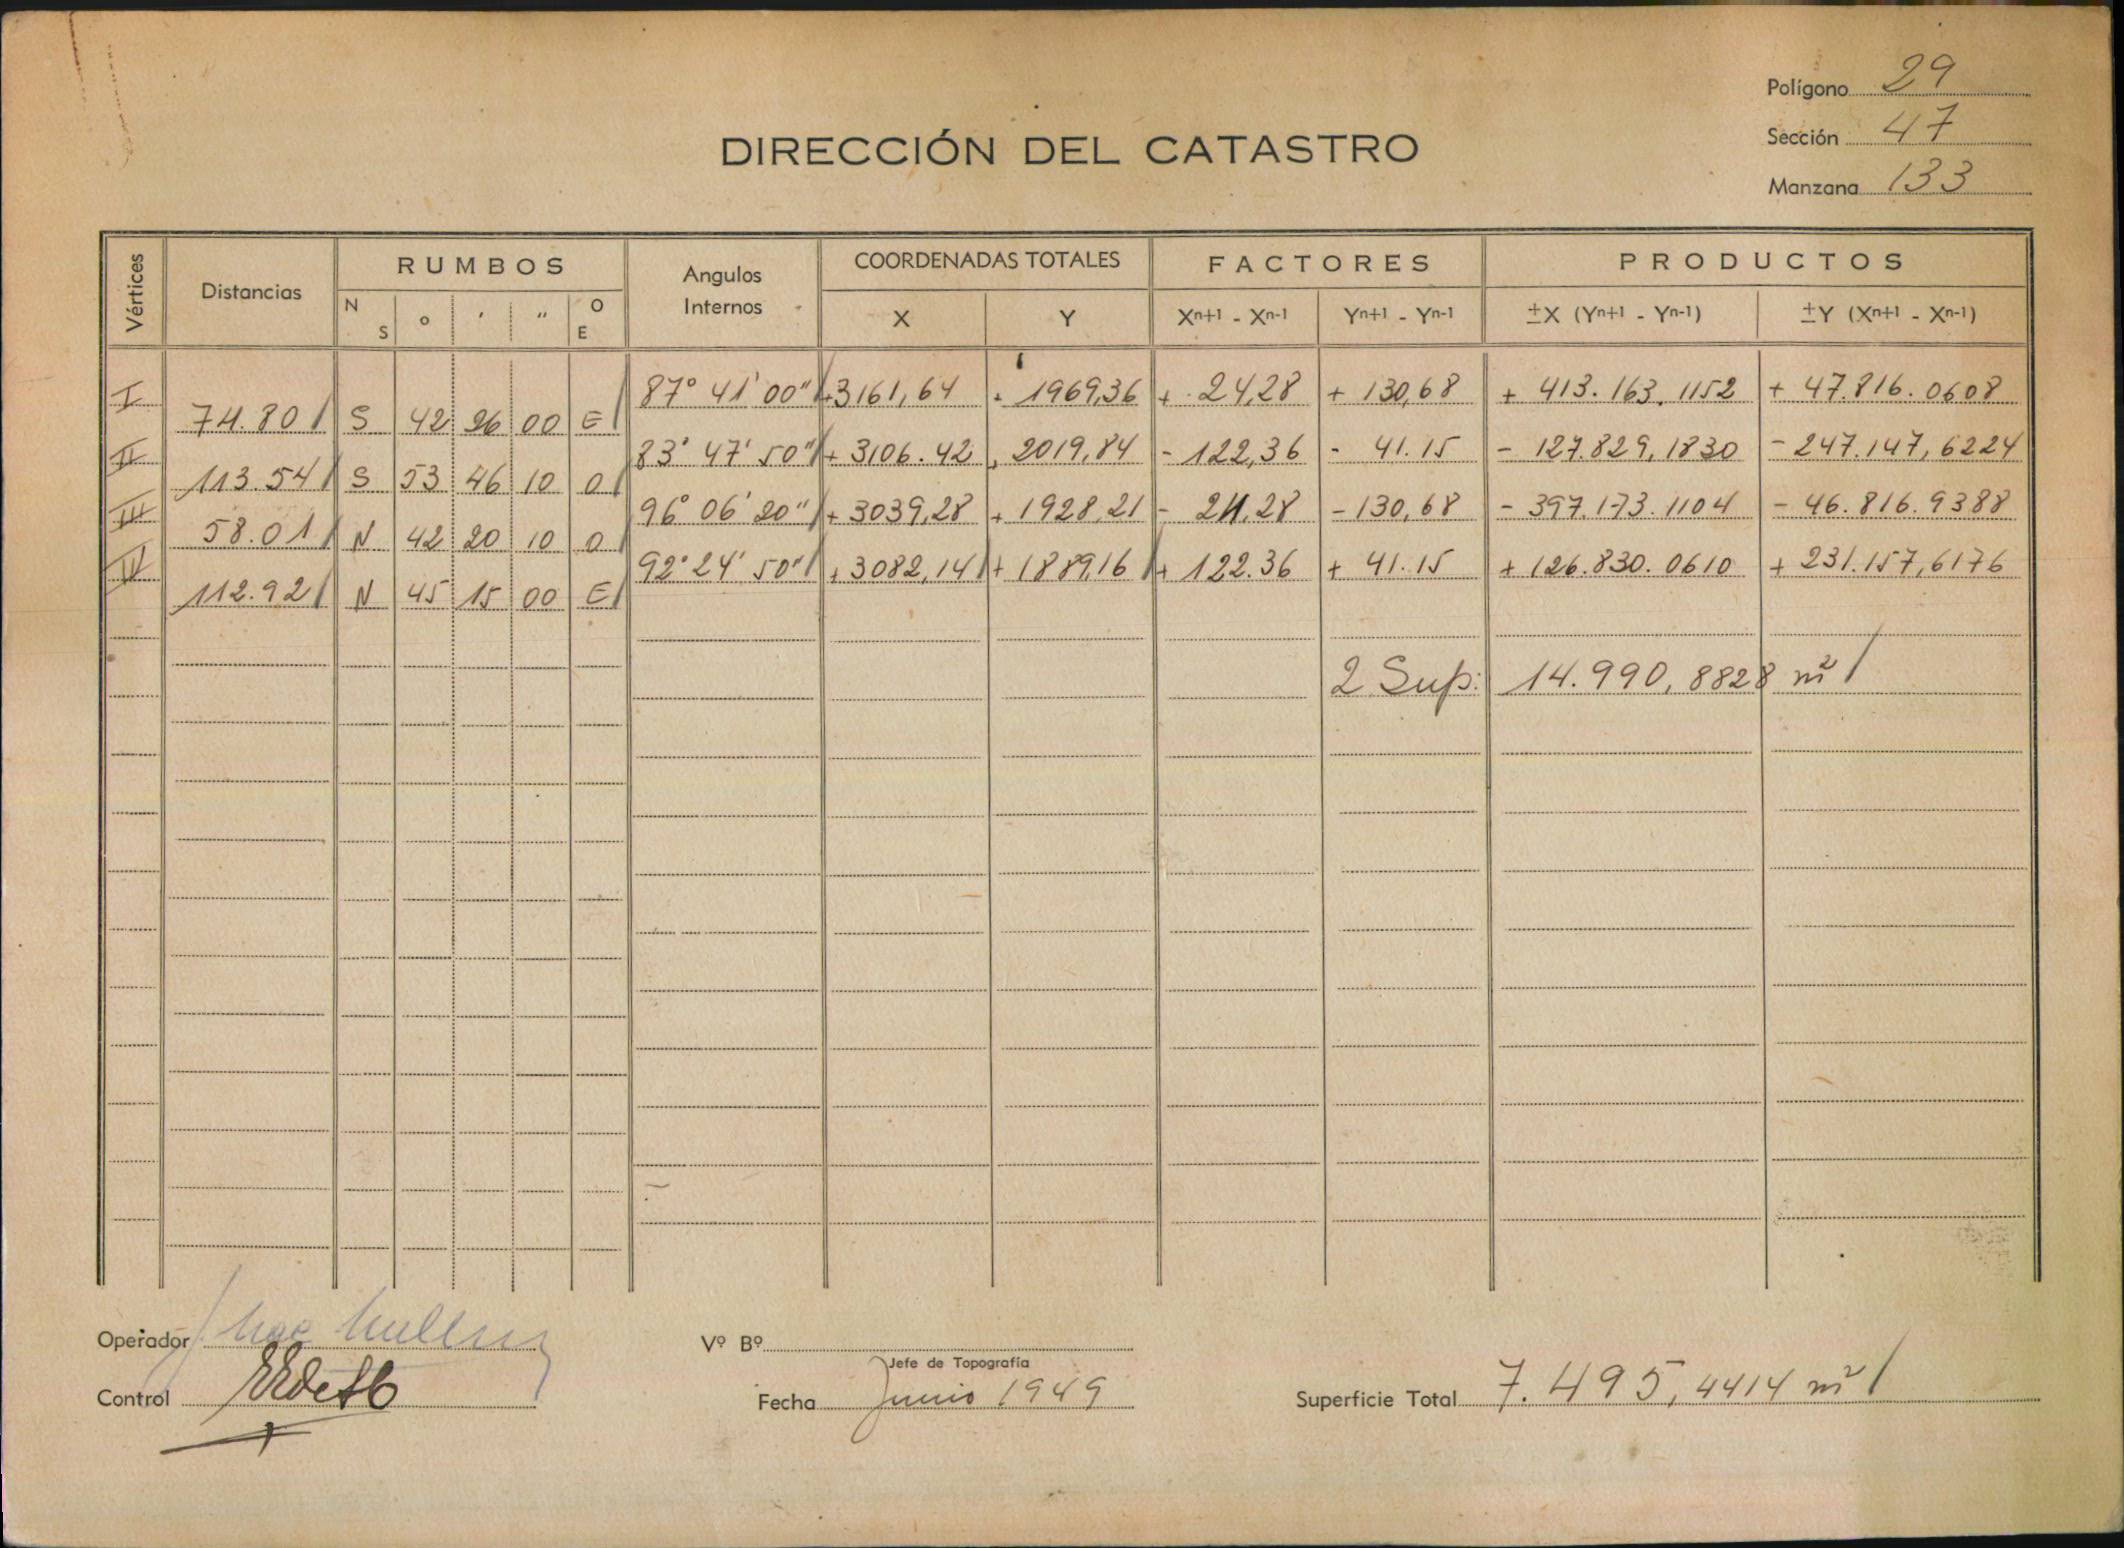 Polígono 29
Sección 47
Manzana 133
DIRECCIÓN DEL CATASTRO
Vértices Distancias RUMBOS Angulos Internos COORDENADAS TOTALES FACTORES PRODUCTOS
N S o ' " O E X Y Xn+1 - Xn-1 Yn+1 - Yn-1 ±X (Yn+1 - Yn-1) ±Y (Xn+1 - Xn-1)
I 87° 41' 00" +3161,64 + 1969,36 + 24,28 + 130,68 + 413.163.1152 + 47.816.0608
74.80 S 42 26 00 E
II 83° 47' 50" + 3106.42 + 2019,84 - 122,36 - 41.15 - 127.829,1830 - 247.147,6224
113.54 S 53 46 10 O
III 96° 06' 20" + 3039,28 + 1928,21 - 24.28 - 130,68 - 397.173.1104 - 46.816.9388
58.01 N 42 20 10 O
IV 92° 24' 50" + 3082,14 + 1889,16 + 122.36 + 41.15 + 126.830.0610 + 231.157,6176
112.92 N 45 15 00 E
2 Sup: 14.990,8828 m²
Operador
Vº Bº
Jefe de Topografía
Control
Fecha Junio 1949
Superficie Total 7.495,4414 m²